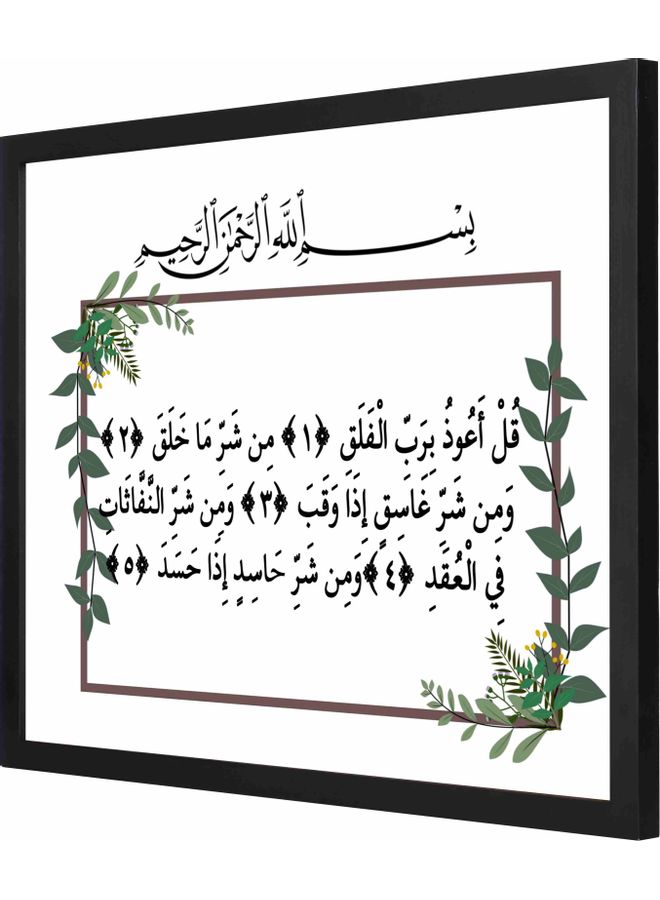 بِسْمِ ٱللَّهِ ٱلرَّحْمَٰنِ ٱلرَّحِيمِ
قُلْ أَعُوذُ بِرَبِّ الْفَلَقِ ﴿١﴾ مِن شَرِّ مَا خَلَقَ ﴿٢﴾
وَمِن شَرِّ غَاسِقٍ إِذَا وَقَبَ ﴿٣﴾ وَمِن شَرِّ النَّفَّاثَاتِ
فِي الْعُقَدِ ﴿٤﴾ وَمِن شَرِّ حَاسِدٍ إِذَا حَسَدَ ﴿٥﴾